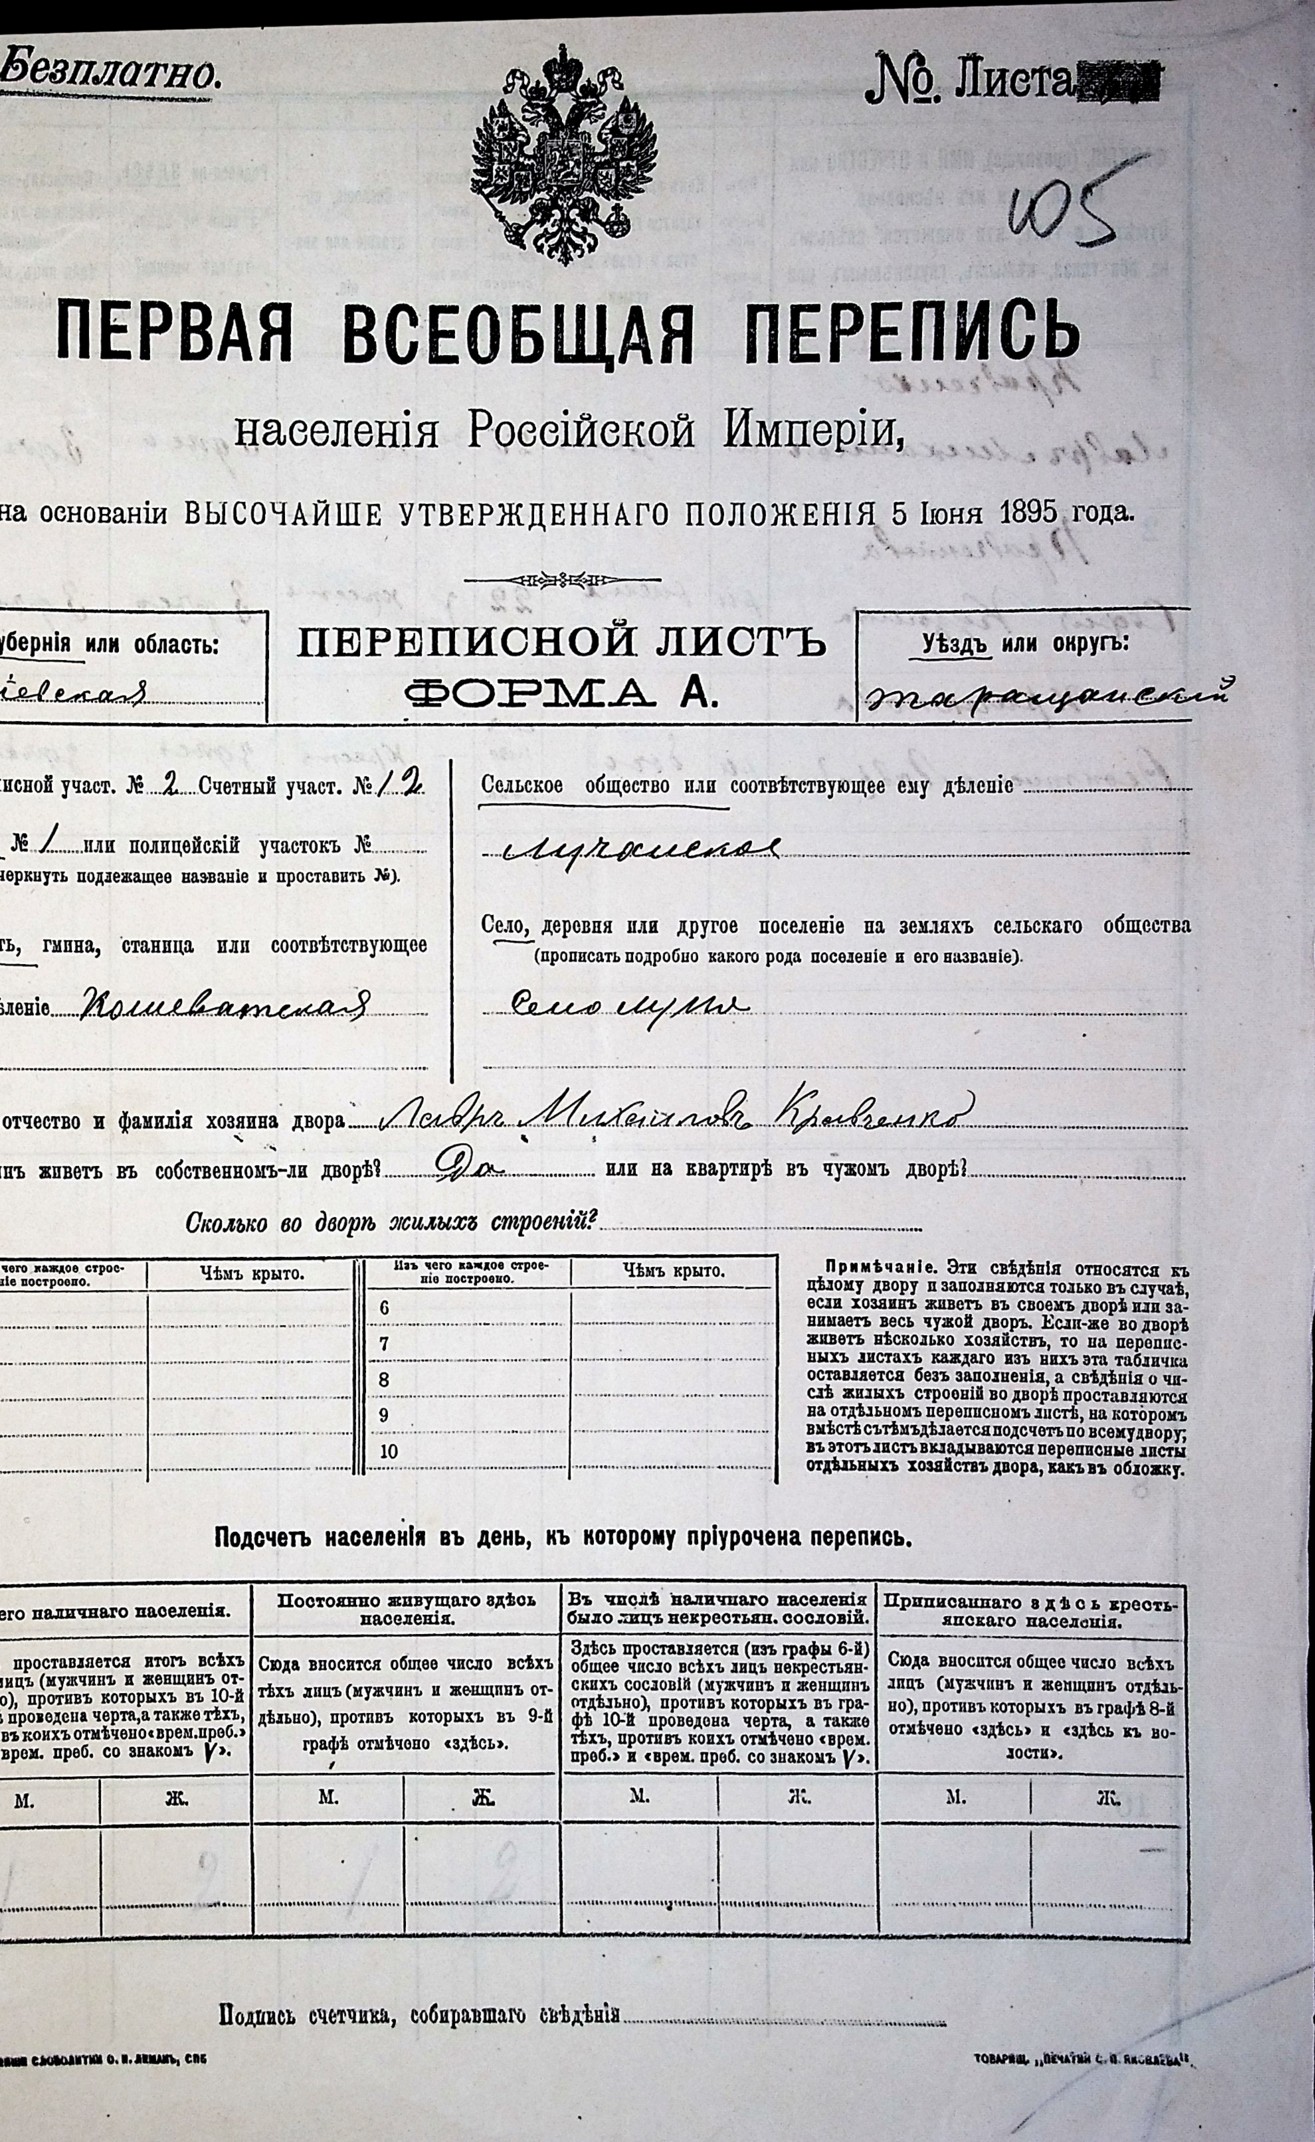 Безплатно.
№ Листа
105
ПЕРВАЯ ВСЕОБЩАЯ ПЕРЕПИСЬ
населенія Россійской Имперіи,
на основаніи ВЫСОЧАЙШЕ УТВЕРЖДЕННАГО ПОЛОЖЕНІЯ 5 Іюня 1895 года.
убернія или область:
іевская
ПЕРЕПИСНОЙ ЛИСТЪ
ФОРМА А.
Уѣздъ или округъ:
Таращанскій
исной участ. № 2 Счетный участ. № 12
№ 1 или полицейскій участокъ №
черкнуть подлежащее названіе и проставить №).
ть, гмина, станица или соотвѣтствующее
ѣленіе Кошеватская
Сельское общество или соотвѣтствующее ему дѣленіе
Лучанское
Село, деревня или другое поселеніе на земляхъ сельскаго общества
(прописать подробно какого рода поселеніе и его названіе).
Село Лука
отчество и фамилія хозяина двора Лавръ Михаиловъ Кравченко
инъ живетъ въ собственномъ-ли дворѣ? Да или на квартирѣ въ чужомъ дворѣ?
Сколько во дворѣ жилыхъ строеній?
чего каждое строе-
ніе построено.
Чѣмъ крыто.
Изъ чего каждое строе-
ніе построено.
Чѣмъ крыто.
6
7
8
9
10
Примѣчаніе. Эти свѣдѣнія относятся къ
цѣлому двору и заполняются только въ случаѣ,
если хозяинъ живетъ въ своемъ дворѣ или за-
нимаетъ весь чужой дворъ. Если-же во дворѣ
живетъ нѣсколько хозяйствъ, то на перепис-
ныхъ листахъ каждаго изъ нихъ эта табличка
оставляется безъ заполненія, а свѣдѣнія о чи-
слѣ жилыхъ строеній во дворѣ проставляются
на отдѣльномъ переписномъ листѣ, на которомъ
вмѣстѣ съ тѣмъ дѣлается подсчетъ по всему двору;
въ этотъ листъ вкладываются переписные листы
отдѣльныхъ хозяйствъ двора, какъ въ обложку.
Подсчетъ населенія въ день, къ которому пріурочена перепись.
его наличнаго населенія.
проставляется итогъ всѣхъ
лицъ (мужчинъ и женщинъ от-
о), противъ которыхъ въ 10-й
проведена черта, а также тѣхъ,
въ коихъ отмѣчено «врем. преб.»
врем. преб. со знакомъ V».
Постоянно живущаго здѣсь
населенія.
Сюда вносится общее число всѣхъ
тѣхъ лицъ (мужчинъ и женщинъ от-
дѣльно), противъ которыхъ въ 9-й
графѣ отмѣчено «здѣсь».
Въ числѣ наличнаго населенія
было лицъ некрестьян. сословій.
Здѣсь проставляется (изъ графы 6-й)
общее число всѣхъ лицъ некрестьян-
скихъ сословій (мужчинъ и женщинъ
отдѣльно), противъ которыхъ въ гра-
фѣ 10-й проведена черта, а также
тѣхъ, противъ коихъ отмѣчено «врем.
преб.» и «врем. преб. со знакомъ V».
Приписаннаго здѣсь кресть-
янскаго населенія.
Сюда вносится общее число всѣхъ
лицъ (мужчинъ и женщинъ отдѣль-
но), противъ которыхъ въ графѣ 8-й
отмѣчено «здѣсь» и «здѣсь къ во-
лости».
М. Ж. М. Ж. М. Ж. М. Ж.
1 2 1 2 —
Подпись счетчика, собиравшаго свѣдѣнія
СЛОВОЛИТНИ О. И. ЛЕМАНЪ, СПБ
ТОВАРИЩ. „ПЕЧАТНИ С. П. ЯКОВЛЕВА".